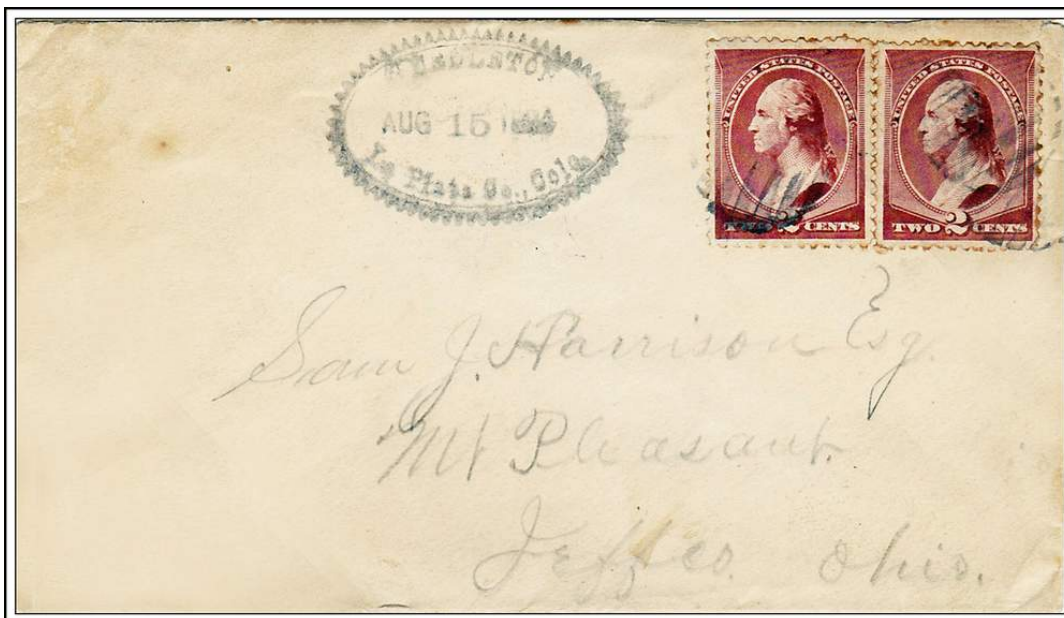 AUG 15
La Plata Co., Colo.
UNITED STATES POSTAGE
CENTS
UNITED STATES POSTAGE
TWO 2 CENTS
Sam J. Harrison Esq.
Mt Pleasant.
Jeff Co. Ohio.